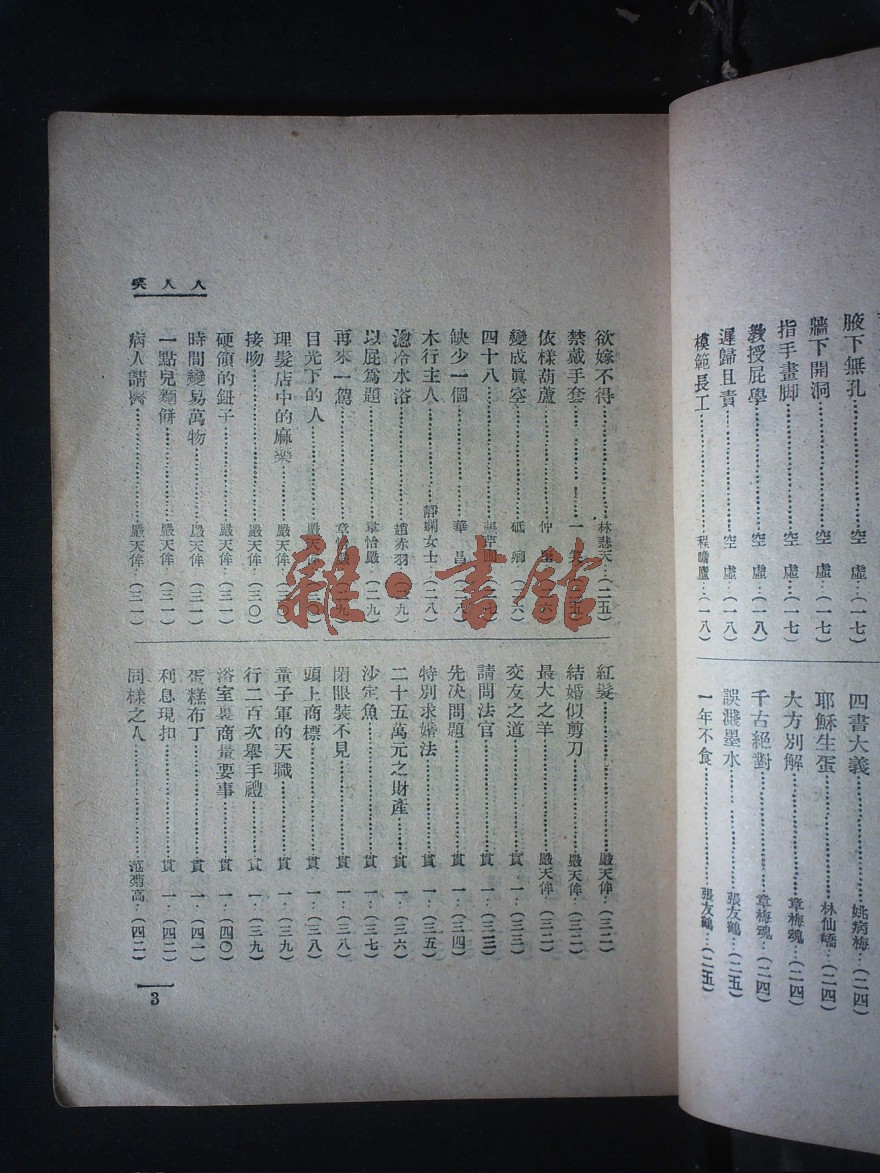 腋下無孔……空虛…(一七)
牆下開洞……空虛…(一七)
指手畫脚……空虛…(一七)
教授屁學……空虛…(一八)
遲歸且責……空虛…(一八)
模範長工……程瞻廬…(一八)
四書大義……姚病梅…(二四)
耶穌生蛋……林仙嶠…(二四)
大方別解……章梅魂…(二四)
千古絕對……章梅魂…(二四)
誤濺墨水……張友鶴…(二五)
一年不食……張友鶴…(二五)
人人笑
欲嫁不得……林悲天…(二五)
禁戴手套……一笑…(二五)
依樣葫蘆……仲
變成眞空……砥瀾…(二六)
四十八……
缺少一個……華昌…(二八)
木行主人……靜嫻女士…(二八)
澆冷水浴……趙赤羽…(二九)
以屁爲題……章怡嚴…(二九)
再來一駕……章怡嚴…(二九)
日光下的人……嚴天侔…(三〇)
理髮店中的麻雀……嚴天侔…(三〇)
接吻……嚴天侔…(三〇)
硬領的鈕子……嚴天侔…(三一)
時間變易萬物……嚴天侔…(三一)
一點兒麵餅……嚴天侔…(三一)
病人請醫……嚴天侔…(三一)
紅髮……嚴天侔…(三二)
結婚似剪刀……嚴天侔…(三二)
最大之羊……嚴天侔…(三二)
交友之道……貫一…(三三)
請問法官……貫一…(三三)
先决問題……貫一…(三四)
特別求婚法……貫一…(三五)
二十五萬元之財產……貫一…(三六)
沙定魚……貫一…(三七)
閉眼裝不見……貫一…(三八)
頭上商標……貫一…(三八)
童子軍的天職……貫一…(三九)
行二百次舉手禮……貫一…(三九)
浴室裏商量要事……貫一…(四〇)
蛋糕布丁……貫一…(四一)
利息現扣……貫一…(四二)
同樣之人……范菊高…(四二)
3
雜·書館